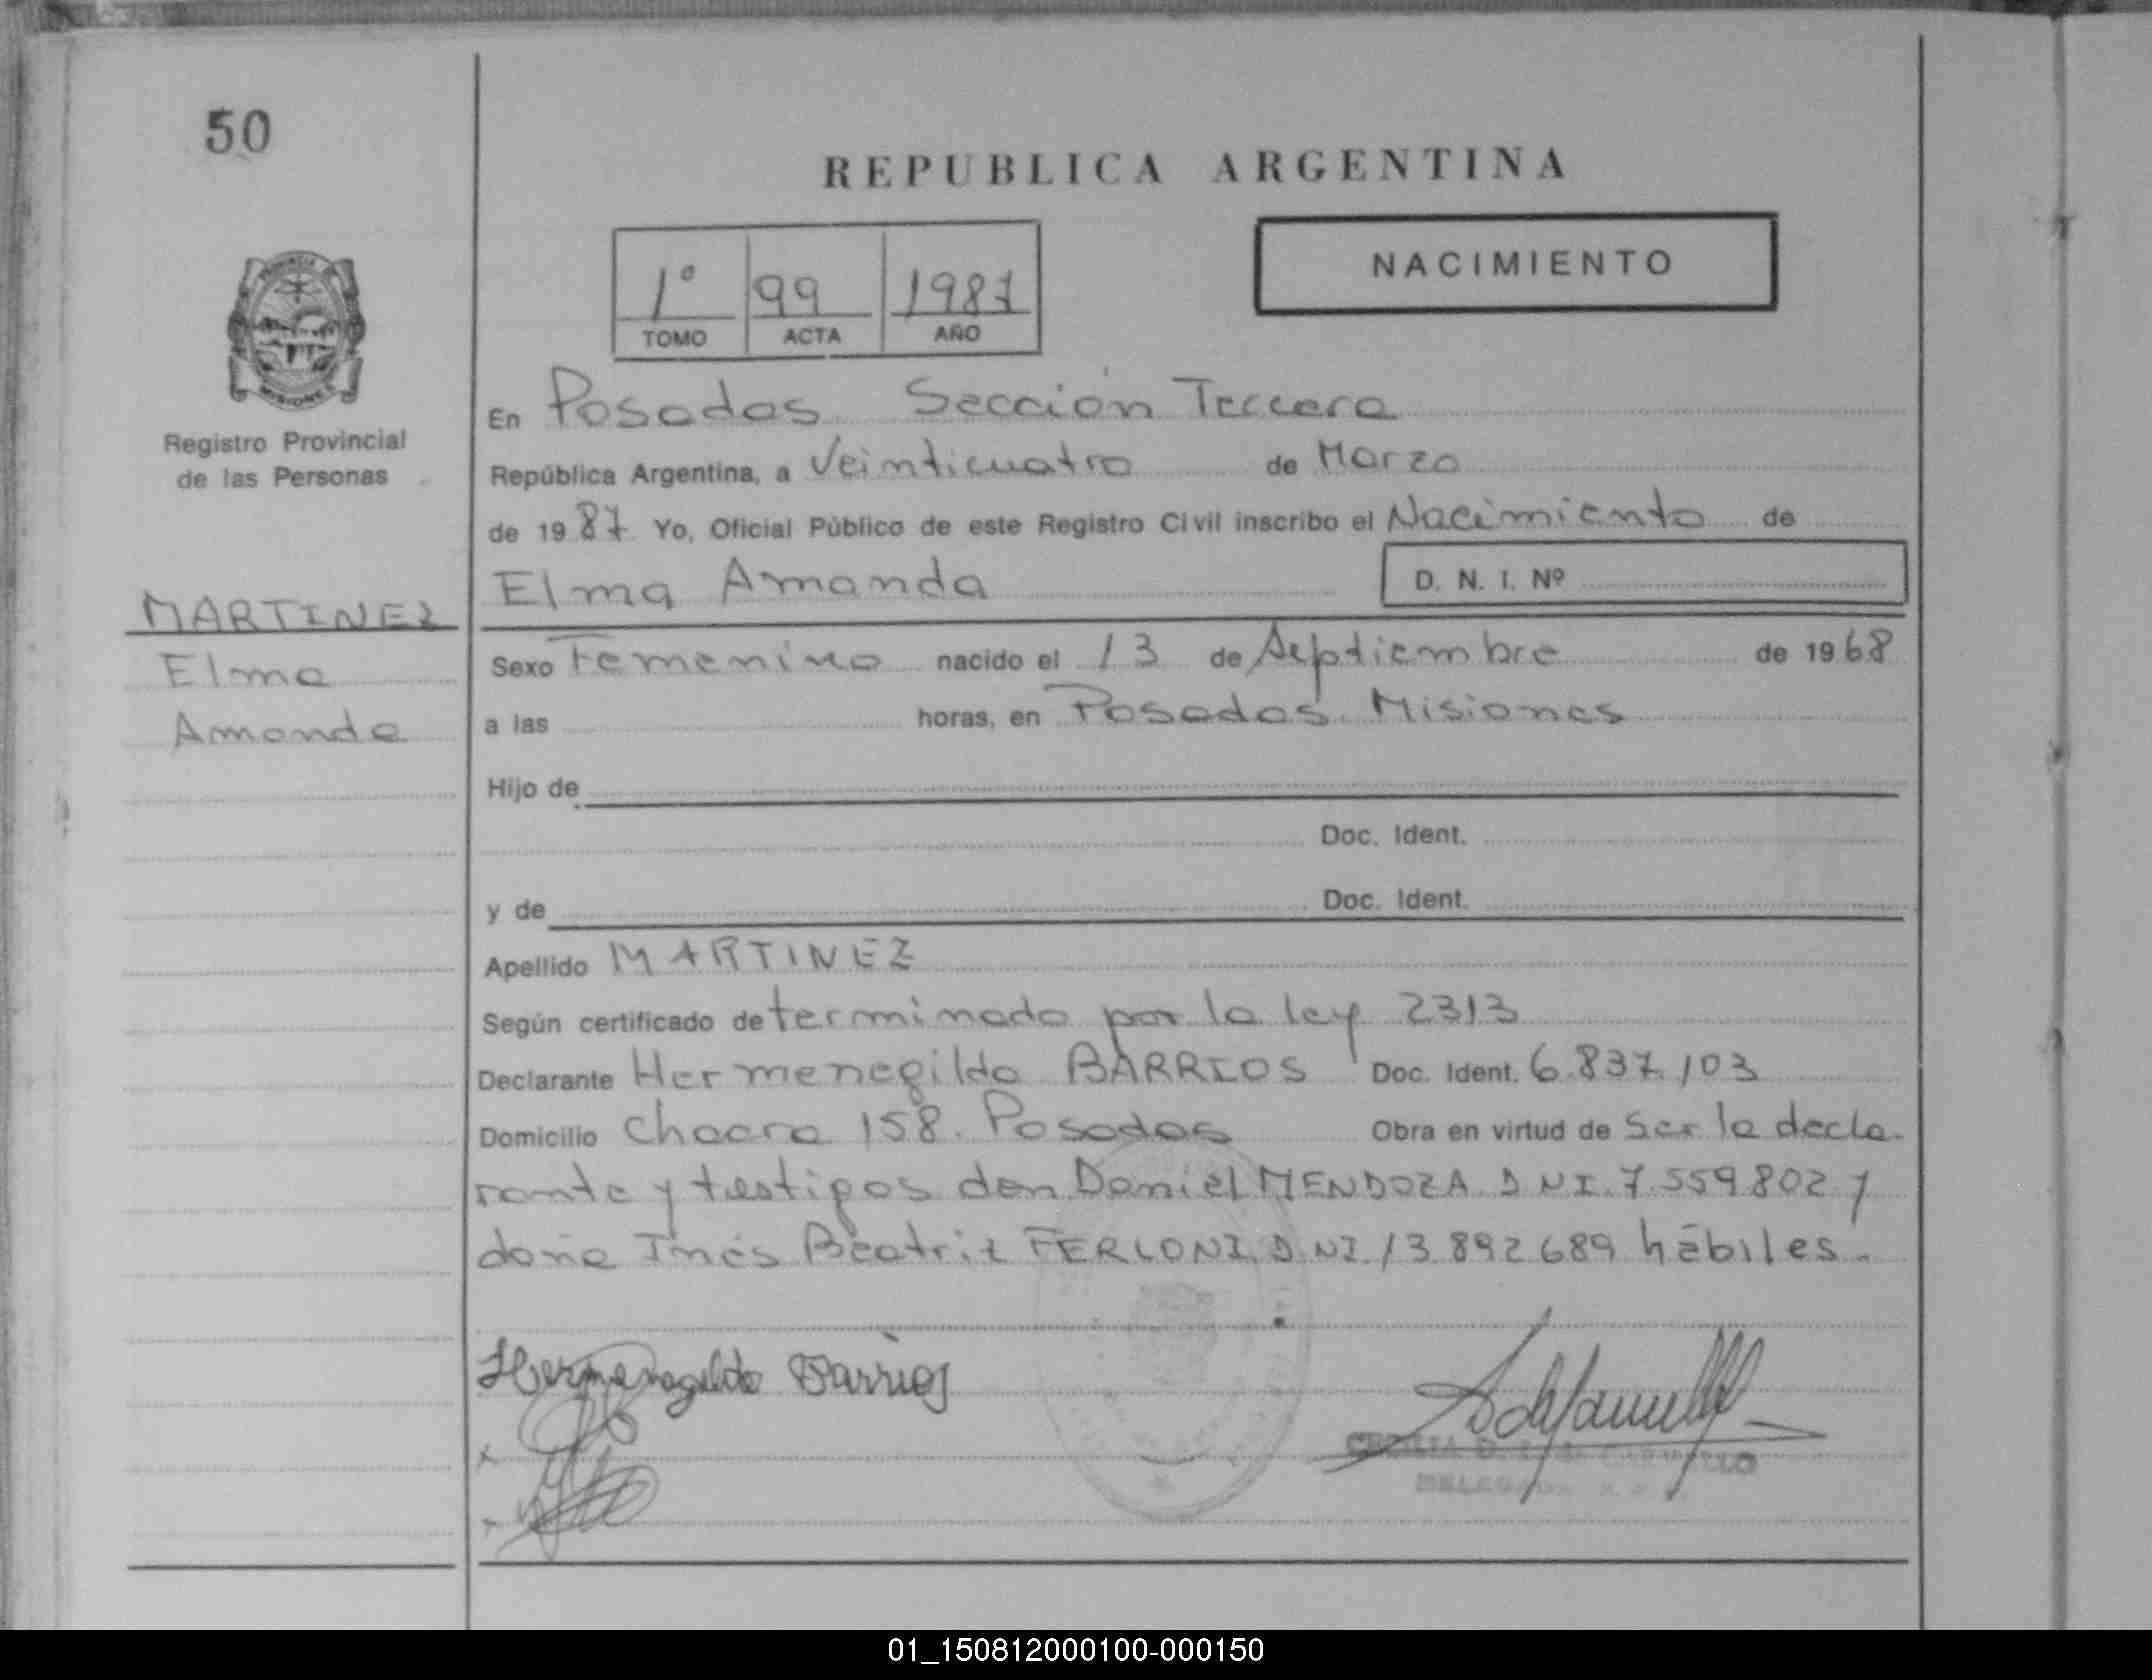 50
REPUBLICA ARGENTINA
1º 99 1987
TOMO ACTA AÑO
NACIMIENTO
PROVINCIA
MISIONES
Registro Provincial
de las Personas
MARTINEZ
Elma
Amanda
En Posadas Sección Tercera
República Argentina, a Veinticuatro de Marzo
de 1987 Yo, Oficial Público de este Registro Civil inscribo el Nacimiento de
Elma Amanda D. N. I. Nº
Sexo Femenino nacido el 13 de Septiembre de 1968
a las horas, en Posadas Misiones
Hijo de
Doc. Ident.
y de Doc. Ident.
Apellido MARTINEZ
Según certificado determinado por la ley 2313
Declarante Hermenegildo BARRIOS Doc. Ident. 6.837.103
Domicilio Chacra 158. Posadas Obra en virtud de ser la decla-
rante y testigos don Daniel MENDOZA D NI. 7.559.802 y
doña Inés Beatriz FERLONI D.NI. 13.892.689 hábiles.
Hermenegildo Barrios
CARVALLO
DELEGADA
01_150812000100-000150